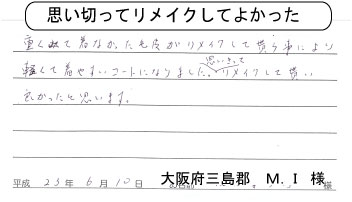 思い切ってリメイクしてよかった
重くて着なかった毛皮がリメイクして貰う事により
軽くて着やすいコートになりました。思いきってリメイクして貰い
良かったと思います。
平成 23年 6月 10日 大阪府三島郡 M. I 様 様